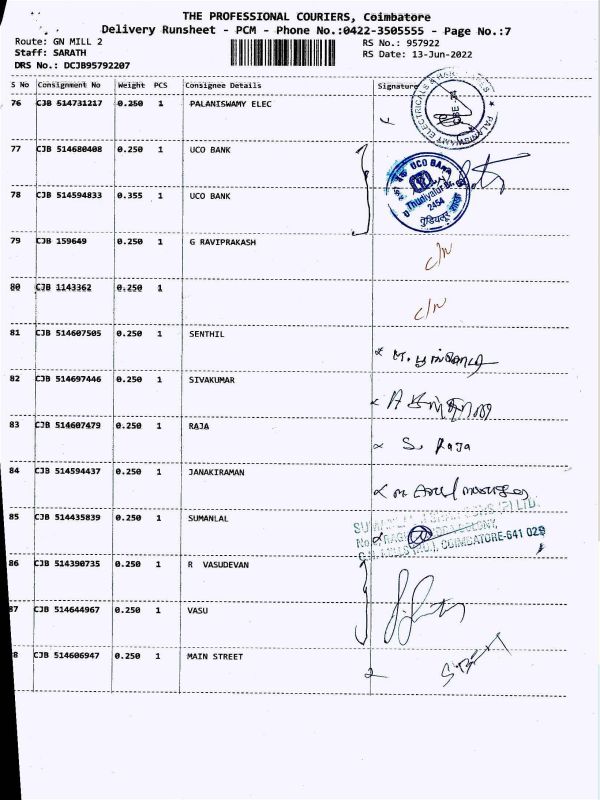 THE PROFESSIONAL COURIERS, Coimbatore
Delivery Runsheet - PCM - Phone No.:0422-3505555 - Page No.:7
Route: GN MILL 2 RS No.: 957922
Staff: SARATH RS Date: 13-Jun-2022
DRS No.: DCJB95792207
S No Consignment No Weight PCS Consignee Details Signature
76 CJB 514731217 0.250 1 PALANISWAMY ELEC
77 CJB 514680408 0.250 1 UCO BANK
UCO BANK
Thudiyalur Br.
2454
78 CJB 514594833 0.355 1 UCO BANK
79 CJB 159649 0.250 1 G RAVIPRAKASH C/N
80 CJB 1143362 0.250 1 C/N
81 CJB 514607505 0.250 1 SENTHIL
82 CJB 514697446 0.250 1 SIVAKUMAR
83 CJB 514607479 0.250 1 RAJA S. Raja
84 CJB 514594437 0.250 1 JANAKIRAMAN
85 CJB 514435839 0.250 1 SUMANLAL
COLONY,
COIMBATORE-641 029
86 CJB 514390735 0.250 1 R VASUDEVAN
87 CJB 514644967 0.250 1 VASU
8 CJB 514606947 0.250 1 MAIN STREET